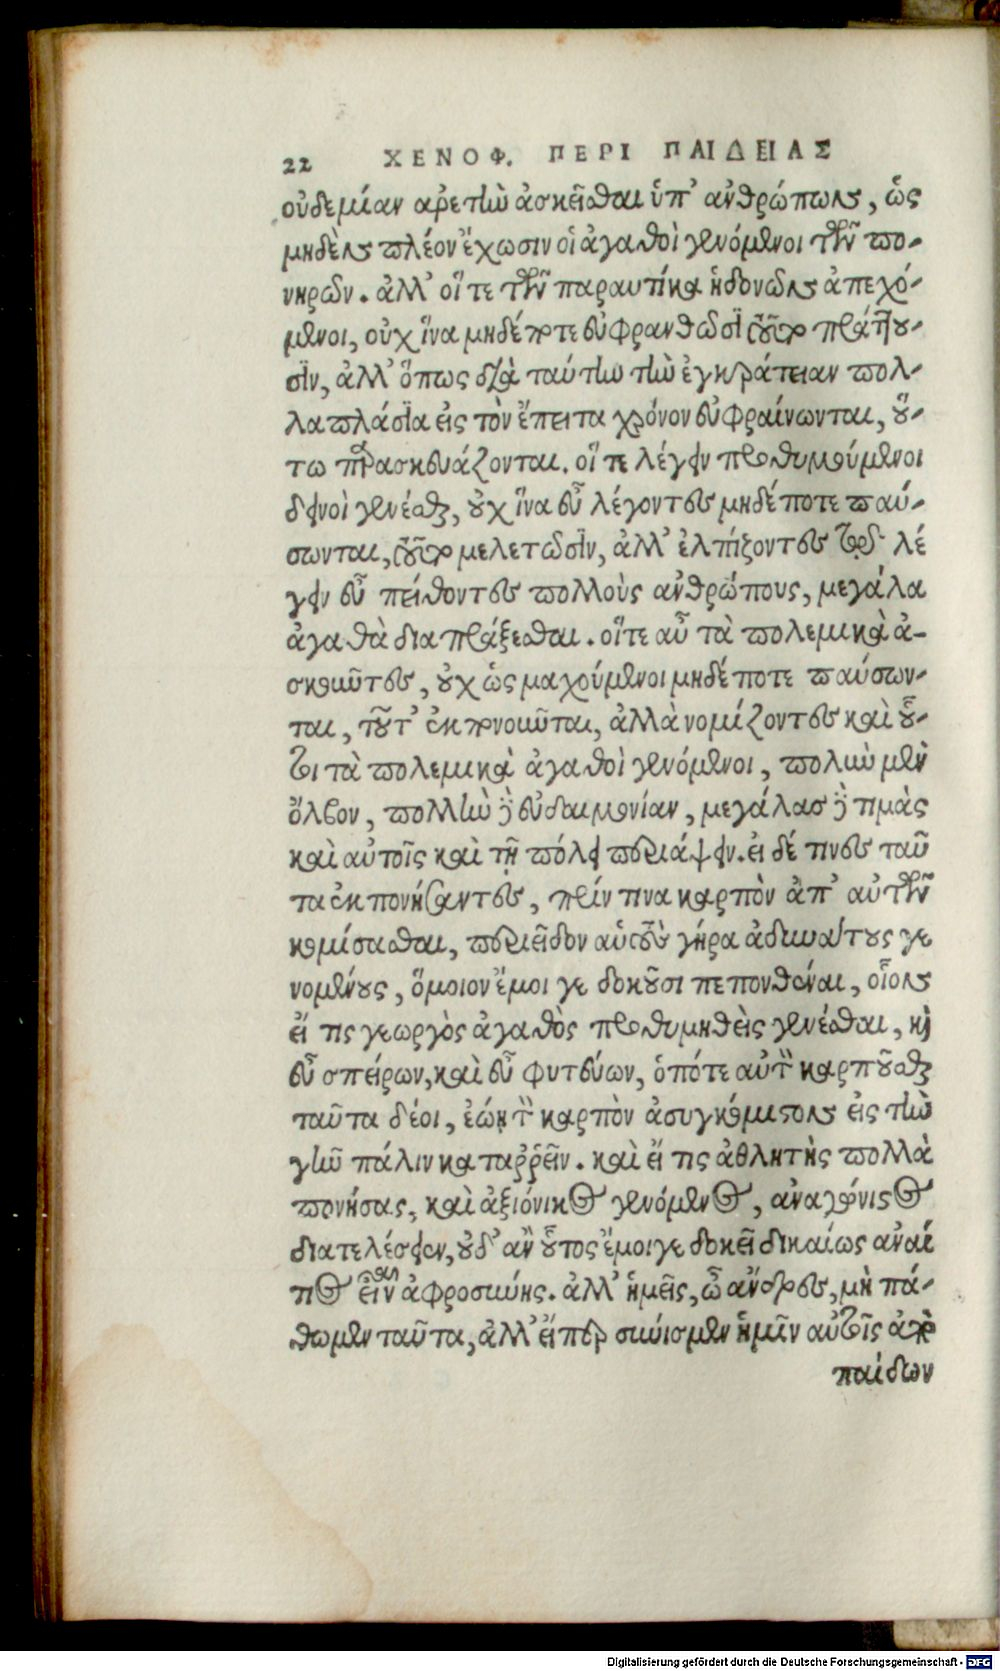 22 ΧΕΝΟΦ. ΠΕΡΙ ΠΑΙΔΕΙΑΣ
οὐδεμίαν ἀρετὴν ἀσκεῖσθαι ὑπ' ἀνθρώπων, ὡς
μηδὲν πλέον ἔχωσιν οἱ ἀγαθοὶ γενόμενοι τῶν πο-
νηρῶν. ἀλλ' οἵ τε τῶν παραυτίκα ἡδονῶν ἀπεχό-
μενοι, οὐχ ἵνα μηδέποτε εὐφρανθῶσι τοῦτο πράττου-
σιν, ἀλλ' ὅπως διὰ ταύτην τὴν ἐγκράτειαν πολ-
λαπλάσια εἰς τὸν ἔπειτα χρόνον εὐφραίνωνται, οὕ-
τω παρασκευάζονται. οἵ τε λέγειν προθυμούμενοι
δεινοὶ γενέσθαι, οὐχ ἵνα εὖ λέγοντες μηδέποτε παύ-
σωνται, τοῦτο μελετῶσιν, ἀλλ' ἐλπίζοντες τῷ λέ
γειν εὖ πείθοντες πολλοὺς ἀνθρώπους, μεγάλα
ἀγαθὰ διαπράξεσθαι. οἵ τε αὖ τὰ πολεμικὰ ἀ-
σκοῦντες, οὐχ ὡς μαχούμενοι μηδέποτε παύσων-
ται, τοῦτ' ἐκπονοῦνται, ἀλλὰ νομίζοντες καὶ οὗ-
τοι τὰ πολεμικὰ ἀγαθοὶ γενόμενοι, πολὺν μὲν
ὄλβον, πολλὴν δὲ εὐδαιμονίαν, μεγάλας δὲ τιμὰς
καὶ αὑτοῖς καὶ τῇ πόλει περιάψειν. εἰ δέ τινες ταῦ
τα ἐκπονήσαντες, πρίν τινα καρπὸν ἀπ' αὐτῶν
κομίσασθαι, περιεῖδον αὑτοὺς γήρᾳ ἀδυνάτους γε
νομένους, ὅμοιον ἔμοιγε δοκοῦσι πεπονθέναι, οἷον
εἴ τις γεωργὸς ἀγαθὸς προθυμηθεὶς γενέσθαι, καὶ
εὖ σπείρων, καὶ εὖ φυτεύων, ὁπότε αὐτὸν καρποῦσθαι
ταῦτα δέοι, ἐῴη τὸν καρπὸν ἀσυγκόμιστον εἰς τὴν
γῆν πάλιν καταῤῥεῖν. καὶ εἴ τις ἀθλητὴς πολλὰ
πονήσας, καὶ ἀξιόνικος γενόμενος, ἀναγώνιστος
διατελέσειεν, οὐδ' ἂν οὗτος ἔμοιγε δοκεῖ δικαίως ἀναί
τιος εἶναι ἀφροσύνης. ἀλλ' ἡμεῖς, ὦ ἄνδρες, μὴ πά-
θωμεν ταῦτα, ἀλλ' εἴπερ σύνισμεν ἡμῖν αὐτοῖς ἀπὸ
παίδων
Digitalisierung gefördert durch die Deutsche Forschungsgemeinschaft - DFG